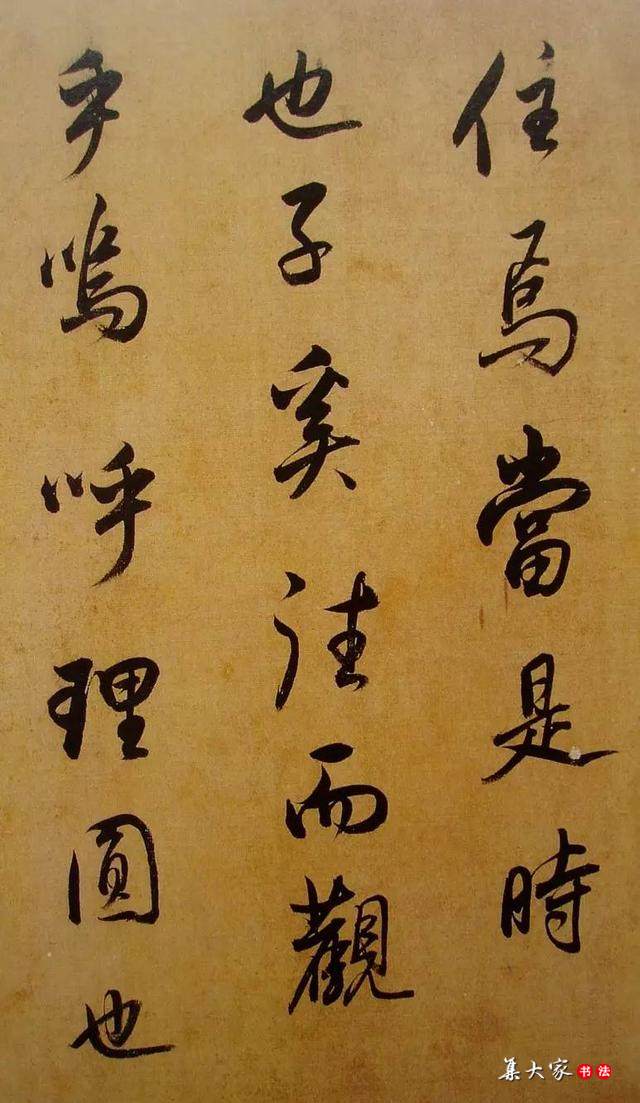 住焉當是時
也子奚往而觀
乎嗚呼理圓也
集大家书法